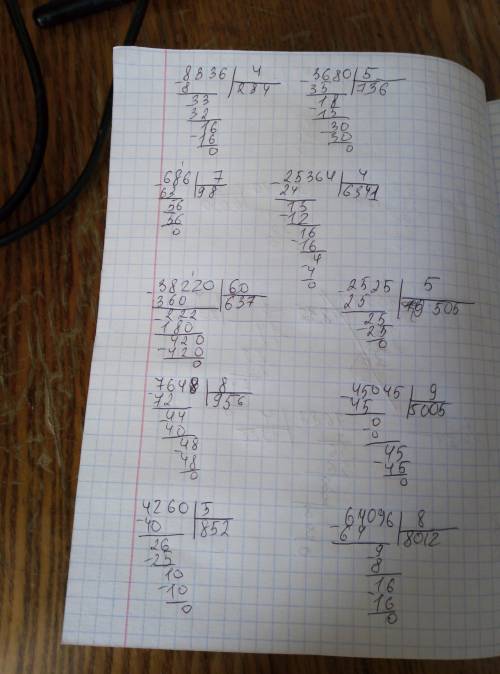 8836 | 4
8 | 234
33
32
16
-16
0
-3680 | 5
35 | 736
-18
15
-30
30
0
-686 | 7
63 | 98
56
56
0
-25364 | 4
24 | 6341
-13
-12
16
-16
4
-4
0
-38220 | 60
360 | 637
-222
180
420
-420
0
-2525 | 5
25 | 505
25
-25
0
-7648 | 8
72 | 956
44
40
-48
48
0
-45045 | 9
-45 | 5005
0
-0
45
-45
0
4260 | 5
-40 | 852
26
-25
10
-10
0
64096 | 8
-64 | 8012
9
8
-16
16
0